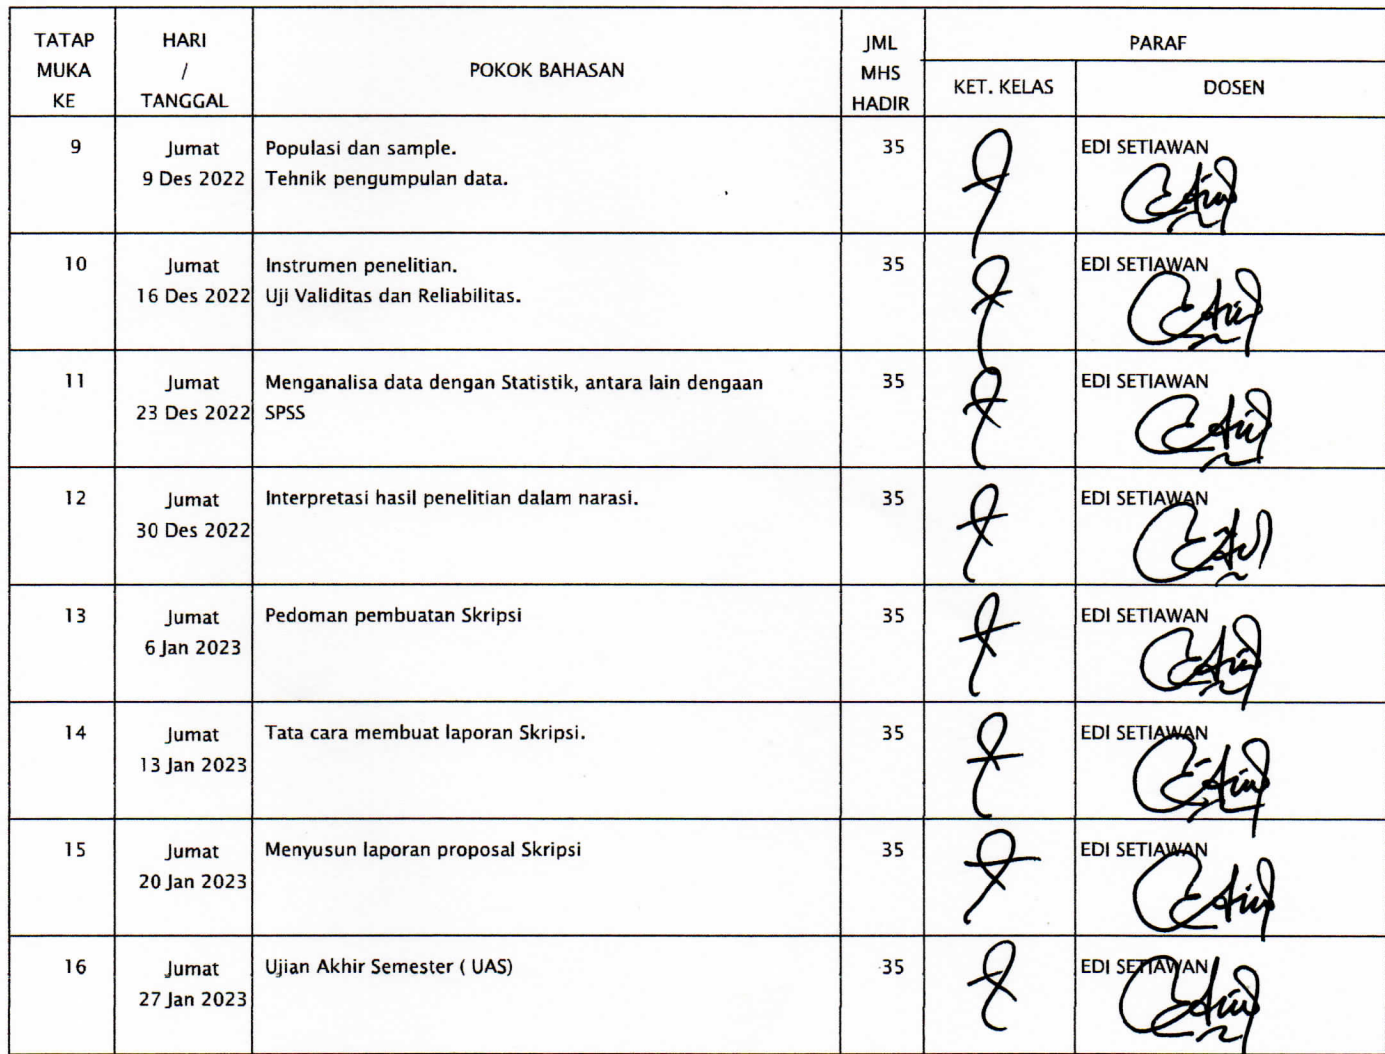 TATAP MUKA KE
HARI / TANGGAL
POKOK BAHASAN
JML MHS HADIR
PARAF
KET. KELAS
DOSEN
9
Jumat
9 Des 2022
Populasi dan sample.
Tehnik pengumpulan data.
35
EDI SETIAWAN
10
Jumat
16 Des 2022
Instrumen penelitian.
Uji Validitas dan Reliabilitas.
35
EDI SETIAWAN
11
Jumat
23 Des 2022
Menganalisa data dengan Statistik, antara lain dengaan
SPSS
35
EDI SETIAWAN
12
Jumat
30 Des 2022
Interpretasi hasil penelitian dalam narasi.
35
EDI SETIAWAN
13
Jumat
6 Jan 2023
Pedoman pembuatan Skripsi
35
EDI SETIAWAN
14
Jumat
13 Jan 2023
Tata cara membuat laporan Skripsi.
35
EDI SETIAWAN
15
Jumat
20 Jan 2023
Menyusun laporan proposal Skripsi
35
EDI SETIAWAN
16
Jumat
27 Jan 2023
Ujian Akhir Semester ( UAS)
35
EDI SETIAWAN